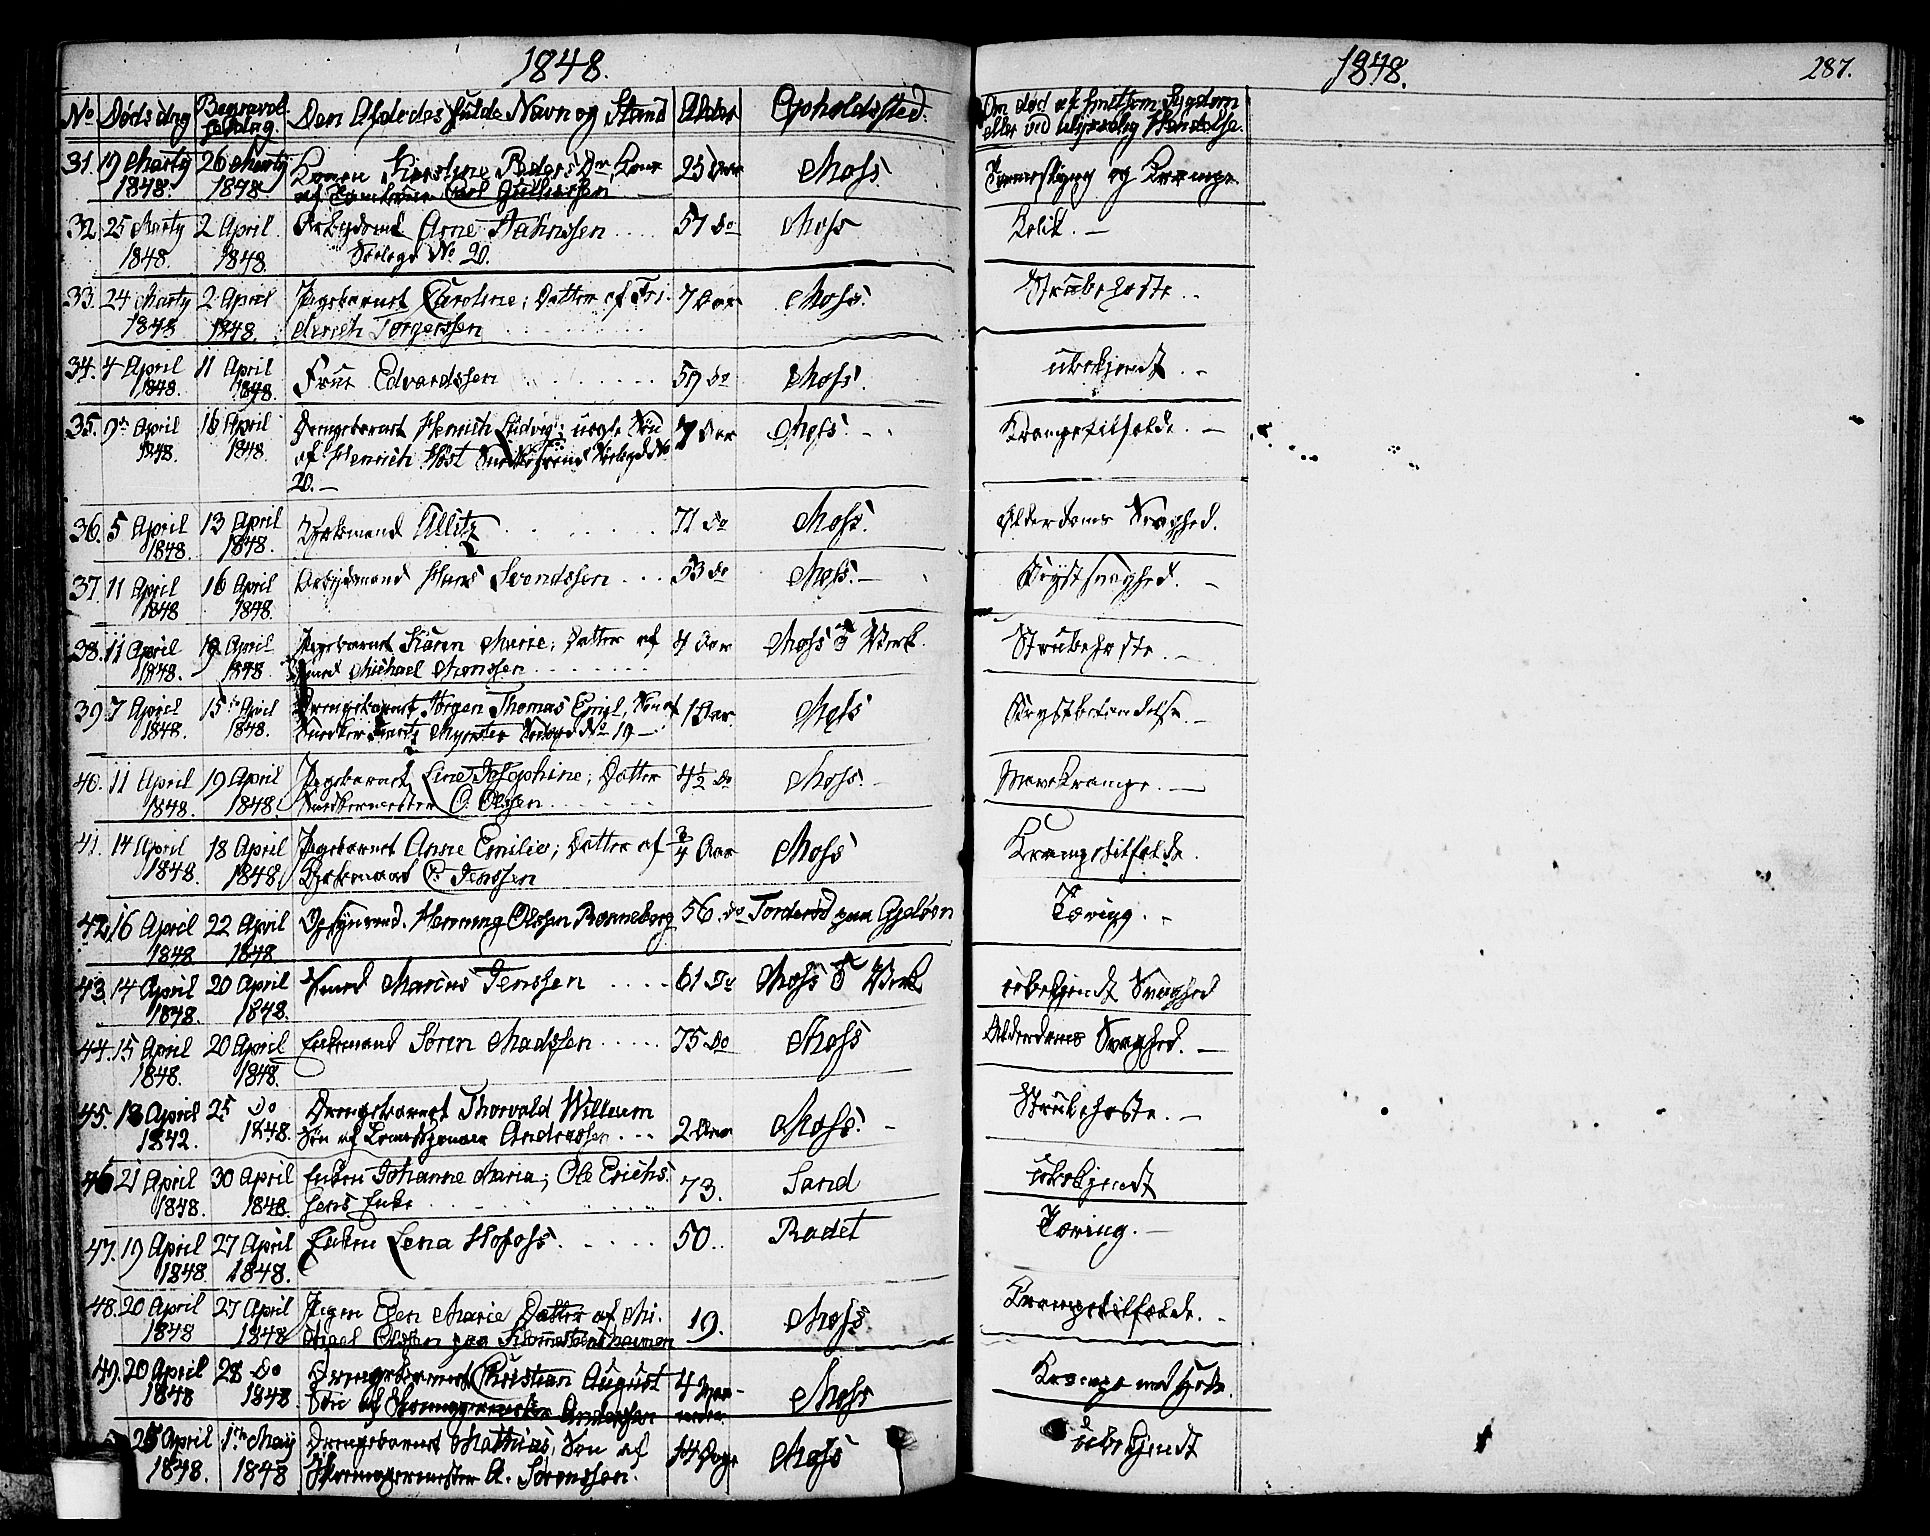 1848.
1848.
287.
No Dødsdag Begravelsesdag. Den Afdødes fulde Navn og Stand Alder Opholdssted.
Om død af smitsom Sygdom
eller ved ulykkelig Hendelse.
31. 19 Marty 1848. 26 Marty 1848. Konen Kirstine Peders Dr, Kone 25 Aar Moss.
af
og Krampe
32. 25 Marty 1848. 2 April 1848. Arbejdsmd Arne Hansen 57 do Moss
No 20.
Kolik. —
33. 24 Marty 1848 2 April 1848. Pigebarnet Caroline; Datter af Fri- 7 Aar Moss.
derich Torgerssen
Strubehoste.
34. 4 April 1848. 11 April 1848. Frue Edvardssen 59 do Moss.
ubekjendt. —
35. 9de April 1848. 16 April 1848. Drengebarnet Henrich Ludvig; uegte Søn 7 Aar Moss —
af Henrich Høst
20. —
Krampetilfælde. —
36. 5 April 1848. 13 April 1848. Ullitz 71 do Moss.
Alderdoms Svaghed.
37. 11 April 1848 16 April 1848. Arbejdsmand Hans Svendssen 53 do Moss. —
Brystsvaghed. —
38. 11 April 1848. 19 April 1848. Pigebarnet Karen Marie; Datter af 4 Aar Moss Verk.
Smed Michael Monssen
Strubehoste. —
39. 7 April 1848. 15de April 1848. Drengebarnet Jørgen Thomas Emil, Søn af 1 Aar. Moss
Snedker No 19 —
Brystbetændelse. —
40. 11 April 1848. 19 April 1848. Pigebarnet Line Josephine; Datter 4½ do Moss. —
Snedkermester O. Olssen
Mavekrampe. —
41. 14 April 1848. 18 April 1848. Pigebarnet Anne Emilie; Datter af ¾ Aar Moss
C. Jenssen
Krampetilfælde.
42. 16 April 1848 22 April 1848 Henning Olssen Ronneborg 56. do Torderød paa Gjeløen
Tæring. —
43. 14 April 1848. 20 April 1848. Smed Marcus Jenssen 61 do Moss Verk
ubekjendt Svaghed
44. 15 April 1848. 20 April 1848. Enkemand Søren Madssen 75 do Moss
Alderdoms Svaghed. —
45. 18 April 1842. 25 do 1848. Drengebarnet Thorvald Willum
Søn af Andressen 2 Aar Moss. —
Strubehoste. —
46 21 April 1848. 30 April 1848. Enken Johanne Maria; Ole Erich- 73. Sand
sens Enke
ubekjendt
47. 19 April 1848. 27 April 1848. Enken Lena Hofoss. 50. Rødet
Tæring. —
48. 20 April 1848 27 April 1848 Pigen Elen Marie Datter af Mi- 19. Moss.
chael Olssen paa
Krampetilfælde. —
49. 20 April 1848 28 do 1848. Drengebarnet Christian August 4 Maaneder Moss
Søn af Skomagermester Anderssen
Krampe
25 April 1848. 1ste May 1848 Drengebarnet Mathias, Søn af 14 Dage Moss
Skomagermester A. Sørenssen.
ubekjendt